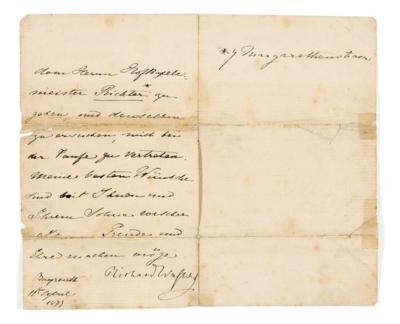 dem Herrn Hofkapell-
meister Richter* zu
geben und denselben
zu ersuchen, mich bei
der Taufe zu vertreten.
Meine besten Wünsche
sind bei Ihnen und
Ihrem Sohne, welcher
alle Freude und
Ehre machen möge
Richard Wagner
Bayreuth
April
* 7 Margarethenstrasse